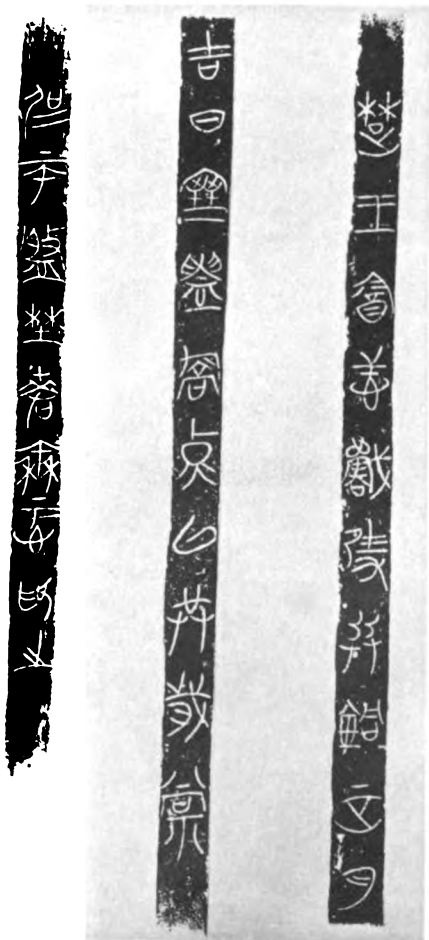 楚王酓忎戰隻兵銅正月
吉日窒鑄喬鼎以共歲棠
冶帀盤埜差秦忑爲之